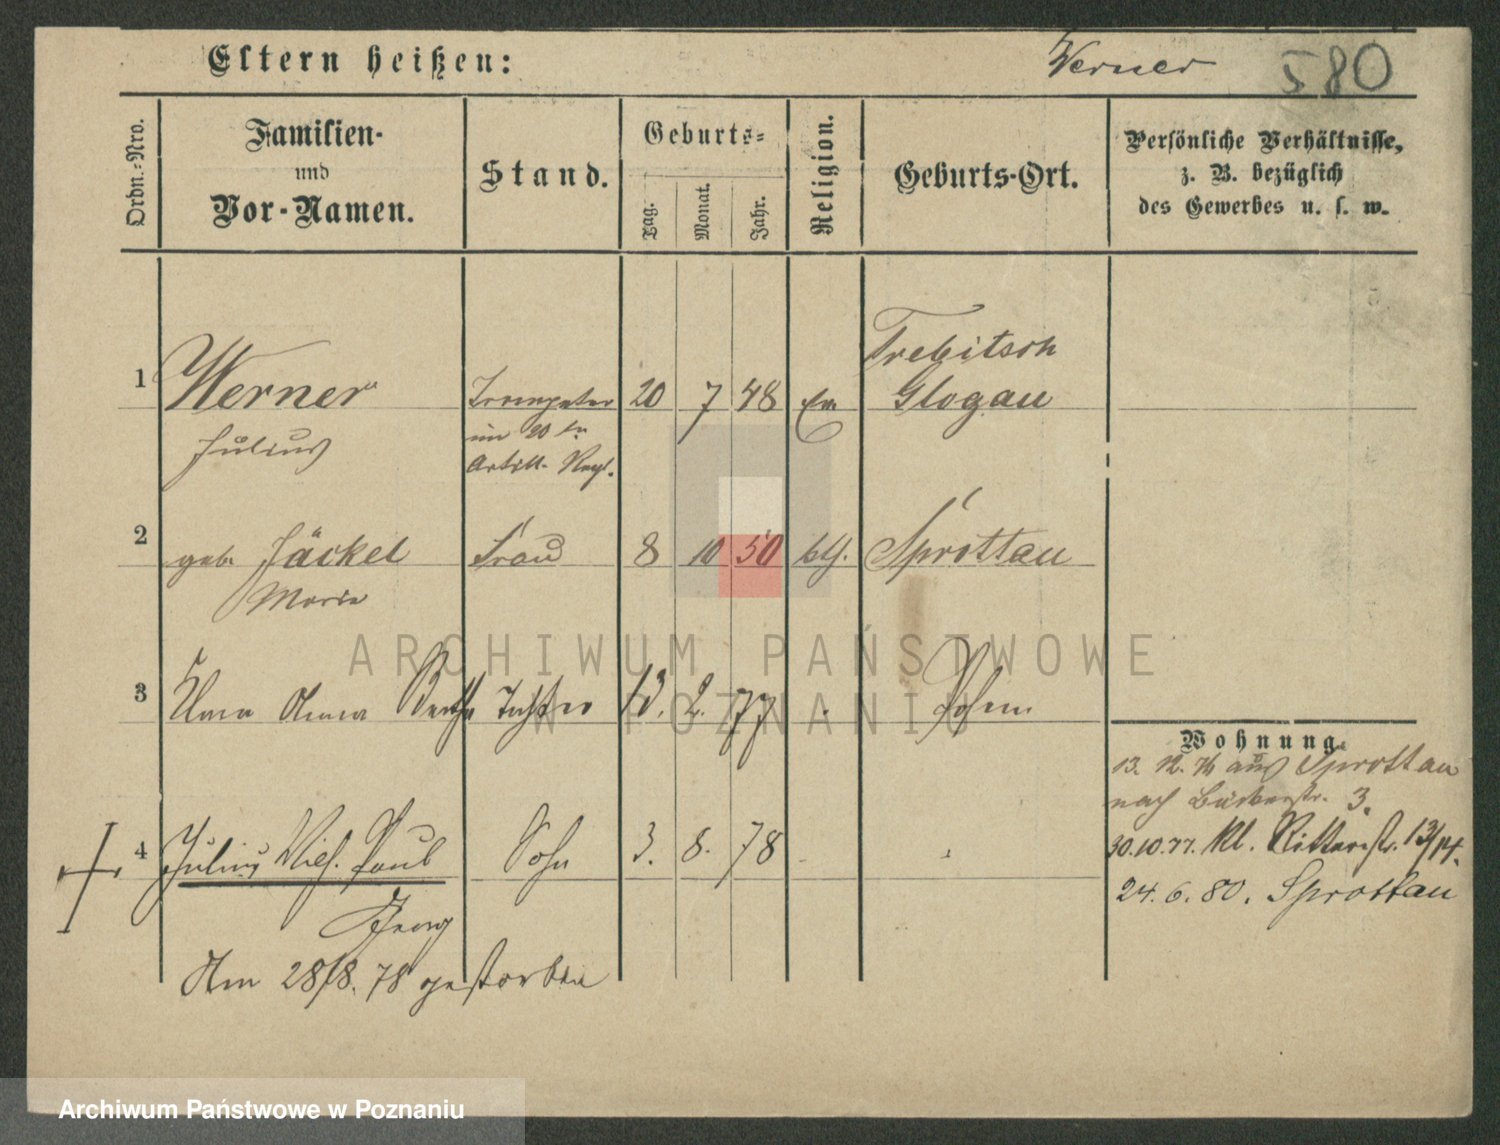 Eltern heißen:
Werner
580
Ordn.-Nro.
Familien-
und
Vor-Namen.
Stand.
Geburts-
Tag.
Monat.
Jahr.
Religion.
Geburts-Ort.
Persönliche Verhältnisse,
z. B. bezüglich
des Gewerbes u. s. w.
Trebitsch
1 Werner Trompeter 20 7 48 ev Glogau
Julius im 20 Artill. Regt.
2 geb. Jäckel Frau 8 10 50 kth. Sprottau
Marie
3 Anna Bertha Tochter 13. 2. 77 Posen
Wohnung.
13. 12. 76 aus Sprottau
nach 3.
30.10.77. Kl. Ritterstr. 13/14.
4 Julius Wilh. Paul Sohn 3. 8. 78
24. 6. 80. Sprottau
Georg
Am 28/8. 78 gestorben
ARCHIWUM PAŃSTWOWE
W POZNANIU
Archiwum Państwowe w Poznaniu